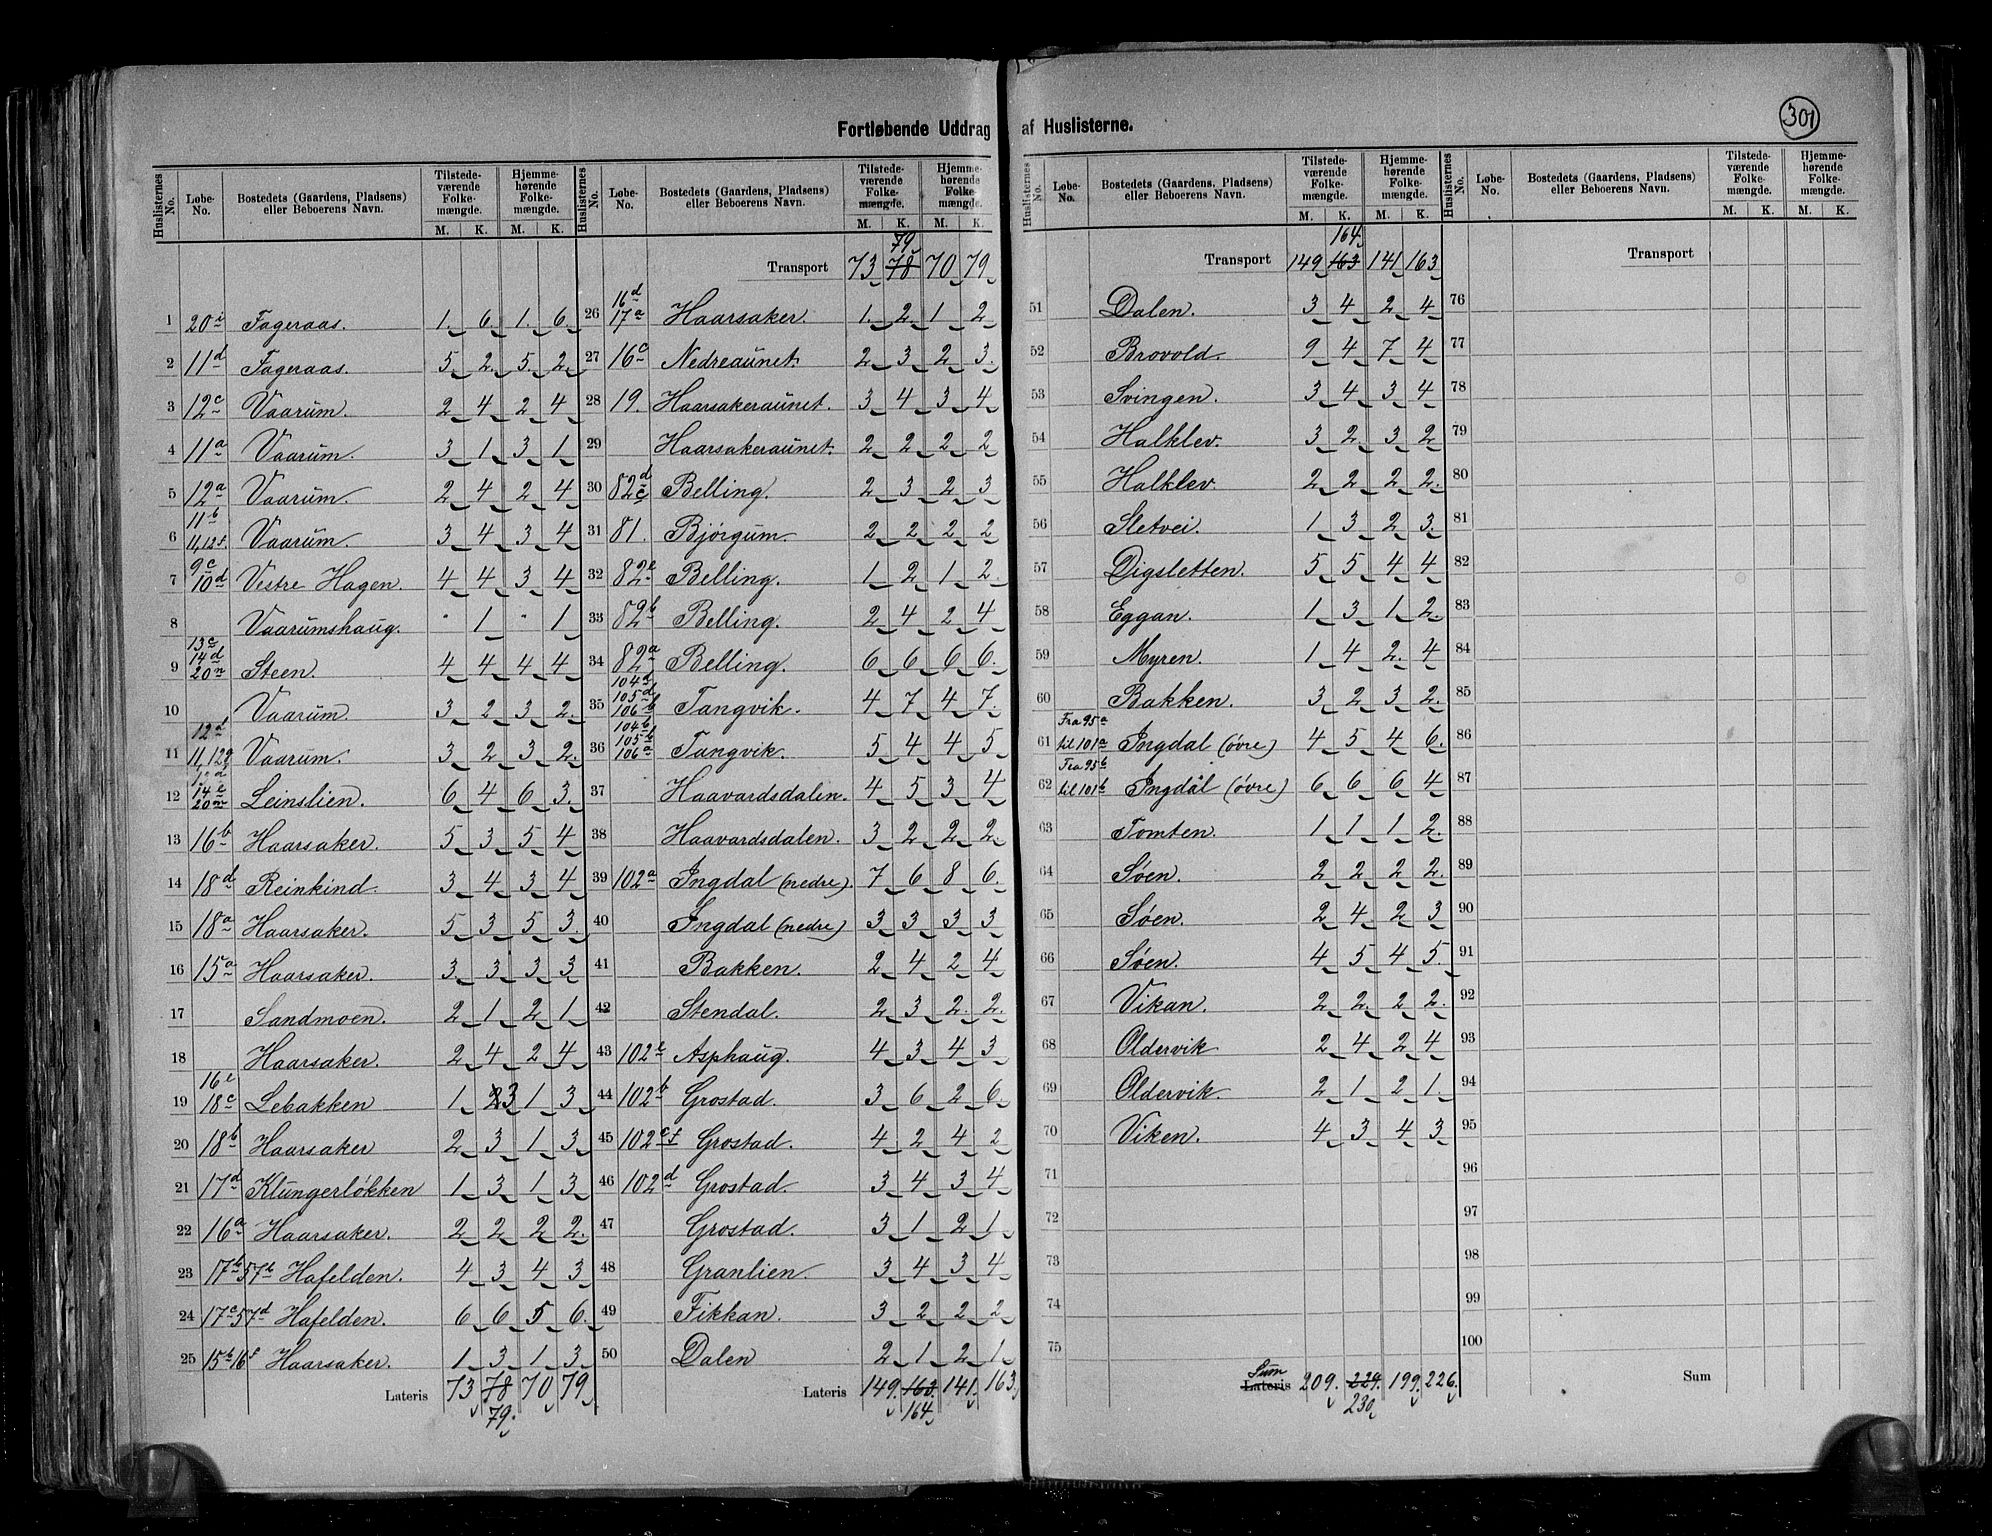 Fortløbende Uddrag af Huslisterne.
301
Huslisternes No. | Løbe-No. | Bostedets (Gaardens, Pladsens) eller Beboerens Navn. | Tilstedeværende Folkemængde. M. K. | Hjemmehørende Folkemængde. M. K.
1 20i Fageraas. 1. 6. 1. 6.
2 11d Fageraas. 5. 2. 5. 2.
3 12c Vaarum. 2 4 2 4
4 11a Vaarum. 3 1 3 1
5 12a Vaarum. 2 4 2 4
6 11b 11,12f. Vaarum. 3 4 3 4
7 9c 10d Vestre Hagen. 4 4 3 4
8 Vaarumshaug. " 1 " 1
9 13c 14d 20n Steen. 4 4 4 4
10 Vaarum. 3 2 3 2.
11 12d 11,12g Vaarum. 3 2 3 2.
12 13d 14e 20m Leinslien. 6 4 6 3.
13 16b Haarsaker. 5 3 5 4
14 18d Reinkind. 3 4 3 4
15 18a Haarsaker. 5 3 5 3.
16 15a Haarsaker. 3 3 3 3
17 Sandmoen. 2 1 2 1
18 Haarsaker. 2 4 2 4
19 16e 18c Lebakken 1 2 3 1 3
20 18b Haarsaker 2 3 1 3
21 17d Klungerløkken 1 3 1 3
22 16a Haarsaker. 2 2 2 2.
23 17b 57b Hafelden. 4 3 4 3
24 17c 57d Hafelden. 6 6 5 6.
25 15b 16f Haarsaker. 1 3 1 3
Lateris 73 78 70 79
79.
Huslisternes No. | Løbe-No. | Bostedets (Gaardens, Pladsens) eller Beboerens Navn. | Tilstedeværende Folkemængde. M. K. | Hjemmehørende Folkemængde. M. K.
79
Transport 73 78 70 79
26 16d 17a Haarsaker. 1. 2 1 2
27 16c Nedreaunet. 2 3 2 3.
28 19. Haarsakeraunet. 3 4 3 4
29 Haarsakeraunet. 2 2 2 2
30 82d c Belling. 2 3 2 3
31 81. Bjørgum. 2 2 2 2
32 82e Belling. 1 2 1 2.
33 82b Belling. 2 4 2 4
34 82a Belling. 6 6 6 6.
35 104d 105d 106b Tangvik. 4 7 4 7.
36 104b 105b 106a Tangvik. 5 4 4 5
37 Haavardsdalen. 4 5 3 4
38 Haavardsdalen. 3 2 2 2.
39 102a Ingdal (nedre). 7 6 8 6.
40 Ingdal (nedre) 3 3 3 3
41 Bakken. 2 4 2 4
42 Stendal. 2 3 2. 2.
43 102e Asphaug. 4 3 4 3
44 102b Grostad. 3 6 2 6.
45 102c f Grostad. 4 2 4 2
46 102d Grostad. 3 4 3 4
47 Grostad. 3 1 2 1
48 Granlien. 3 4 3 4
49 Fikkan. 3 2 2 2
50 Dalen 2 1 2 1
Lateris 149. 163. 141. 163.
164
Huslisternes No. | Løbe-No. | Bostedets (Gaardens, Pladsens) eller Beboerens Navn. | Tilstedeværende Folkemængde. M. K. | Hjemmehørende Folkemængde. M. K.
164
Transport 149 163 141 163
51 Dalen. 3 4 2 4
52 Brovold. 9 4 7 4
53 Svingen. 3 4 3 4
54 Halklev. 3 2. 3 2
55 Halklev. 2 2 2 2.
56 Sletvei. 1 3 2 3.
57 Digsletten. 5 5 4 4
58 Eggan. 1 3 1 2
59 Myren. 1 4 2. 4
60 Bakken. 3 2 3 2.
61 Fra 95a til 101a Ingdal (øvre) 4 5 4 6.
62 Fra 95b til 101b Ingdal (øvre) 6 6 6 4
63 Tomten. 1 1 1 2.
64 Søen. 2 2 2 2.
65 Søen. 2 4 2 3
66 Søen. 4 5 4 5.
67 Vikan. 2 2. 2 2.
68 Oldervik 2 4 2 4
69 Oldervik. 2 1 2 1.
70 Viken. 4 3 4 3
71
72
73
74
75
Sum
Lateris 209. 229. 199. 226.
230
Huslisternes No. | Løbe-No. | Bostedets (Gaardens, Pladsens) eller Beboerens Navn. | Tilstedeværende Folkemængde. M. K. | Hjemmehørende Folkemængde. M. K.
Transport
76
77
78
79
80
81
82
83
84
85
86
87
88
89
90
91
92
93
94
95
96
97
98
99
100
Sum